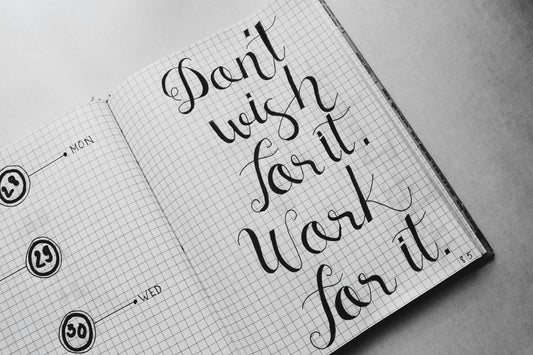 28
MON
29
WED
30
Don't
wish
for it.
Work
for it.